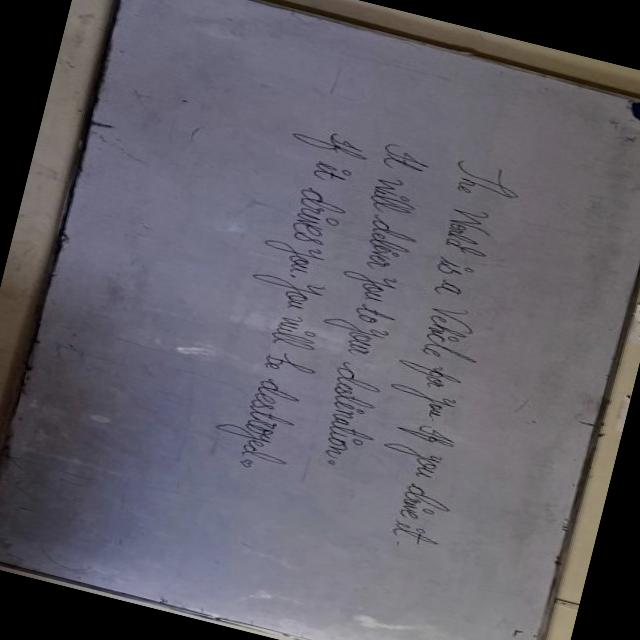 The World is a Vehicle for you if you drive it
it will deliver you to your destination.
If it drives you you will be destroyed.